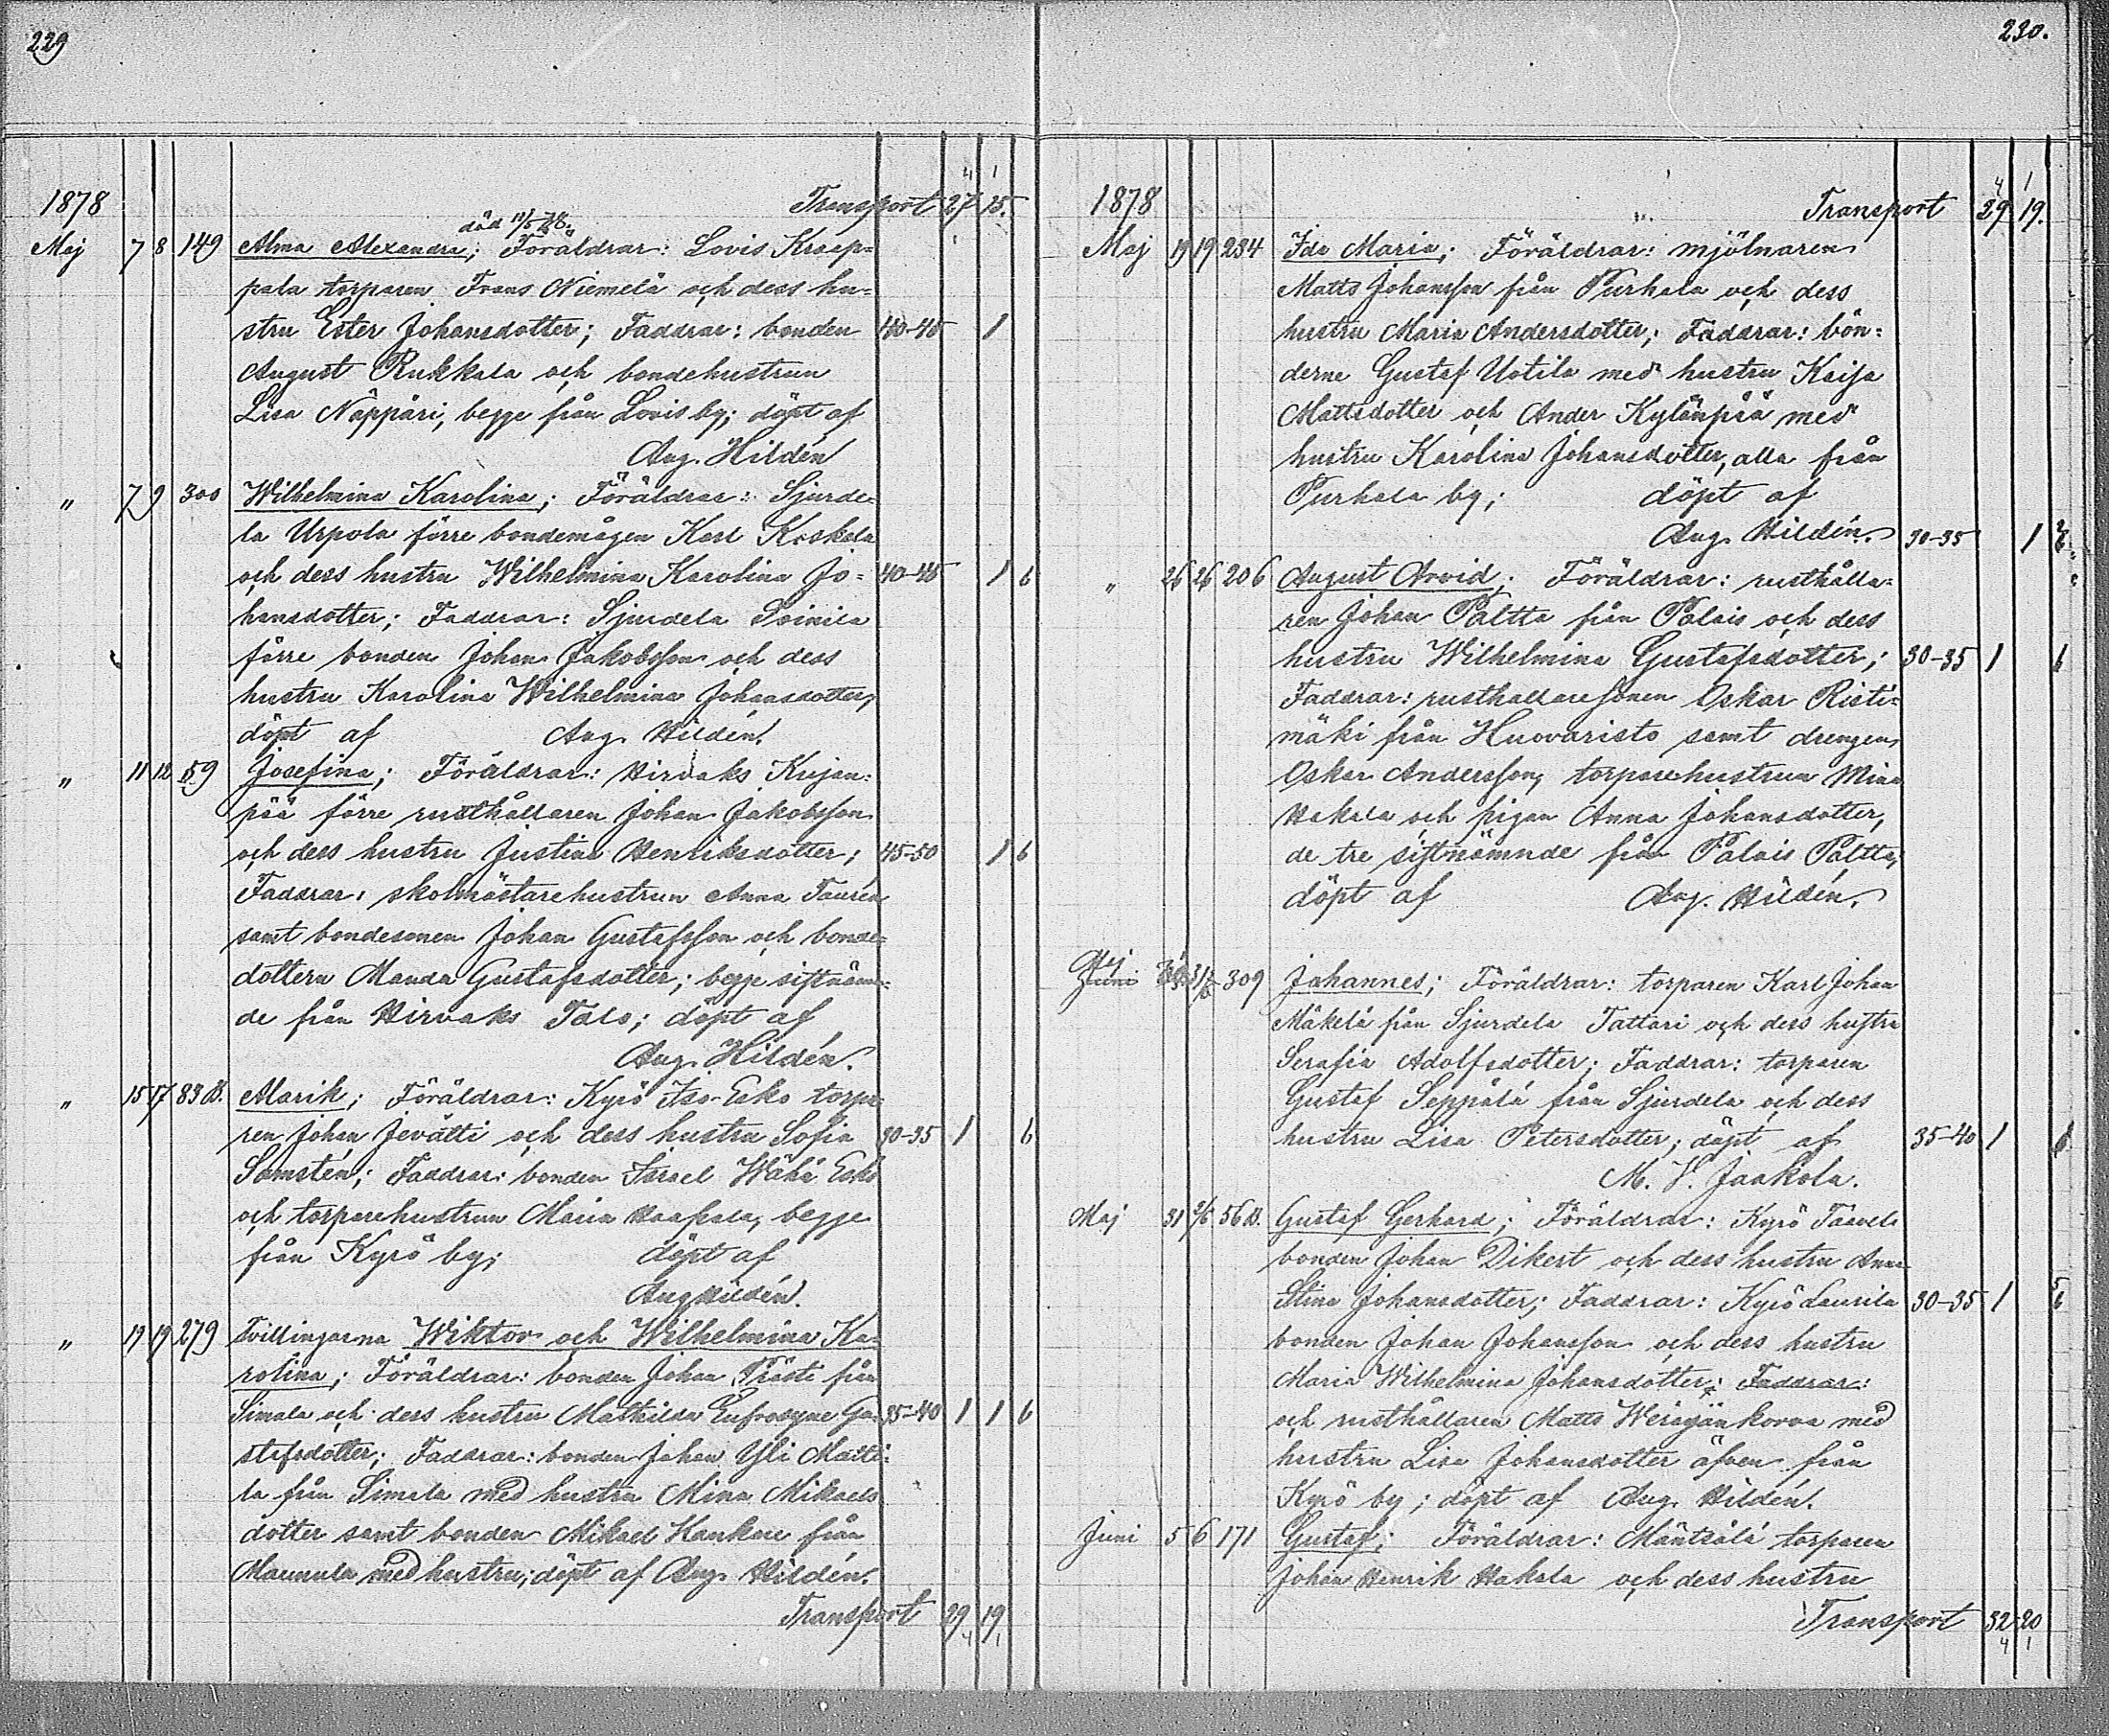 229
4 1
1878 Transport 27 15.
död 11/5 78.
Maj 7 8 149 Alma Alexandra; Föräldrar: Lovis Kraap=
pala torparen Frans Niemelä och dess hu=
stru Ester Johansdotter; Faddrar: bonden 40-45 1
August Rukkala och bondehustrun
Lisa Näppäri, begge från Lovis by; döpt af
Aug. Hildén
" 7 9 300 Wilhelmina Karolina; Föräldrar: Sjurde=
la Urpola förre bondemågen Karl Koskela
och dess hustru Wilhelmina Karolina Jo= 40-45 1 6
hansdotter; Faddrar: Sjurdela Soinila
förre bonden Johan Jakobsson och dess
hustru Karolina Wilhelmina Johansdotter,
döpt af Aug. Hildén.
" 11 12 59 Josefina; Föräldrar: Hirvaks Kujan=
pää förre rusthållaren Johan Jakobsson
och dess hustru Justina Henriksdotter; 45-50 1 6
Faddrar: skolmästarehustrun Anna Taurén
samt bondesonen Johan Gustafsson och bonde=
dottern Manda Gustafsdotter; begge sistnämn=
de från Hirvaks Talo; döpt af
Aug. Hildén.
" 15 17 83 B. Marik; Föräldrar: Kyrö Iso-Esko torpa=
ren Johan Jevätti och dess hustru Sofia 30-35 1 6
Samstén; Faddrar: bonden Israel Wähä Esko
och torparehustrun Maria Haapala, begge
från Kyrö by; döpt af
Aug Hildén.
" 19 19 279 Tvillingarna Wiktor och Wilhelmina Ka=
rolina; Föräldrar: bonden Johan Präste från
Simala och dess hustru Mathilda Eufrosyne Gu= 35-40 1 1 6
stafsdotter; Faddrar: bonden Johan Yli Matti=
la från Simala med hustru Mina Mikaels
dotter samt bonden Mikael Kankare från
Maunula med hustru; döpt af Aug. Hildén.
Transport 29 19
4 1
230.
4 1
1878 Transport 29 19.
Maj 19 19 234 Ida Maria; Föräldrar: mjölnaren
Matts Johansson från Purhala och dess
hustru Maria Andersdotter; Faddrar: bön=
derne Gustaf Uotila med hustru Kaisa
Mattsdotter och Ander Kylänpää med
hustru Karolina Johansdotter, alla från
Purhala by; döpt af
Aug. Hildén. 30-35 1
" 26 26 206 August Arvid; Föräldrar: rusthålla=
ren Johan Paltta från Palais och dess
hustru Wilhelmina Gustafsdotter; 30-35 1 6
Faddrar: rusthållaresonen Oskar Risti=
mäki från Huovaristo samt drengen
Oskar Andersson, torparehustrun Mina
Hakala och pigan Anna Johansdotter,
de tre sistnämnde från Palais Paltta,
döpt af Aug. Hildén.
Maj
Juni 309 Johannes; Föräldrar: torparen Karl Johan
Mäkelä från Sjurdela Tattari och dess hustru
Serafia Adolfsdotter; Faddrar: torparen
Gustaf Seppälä från Sjurdela och dess
hustru Lisa Petersdotter; döpt af 35-40 1 6
M. V. Jaakola.
Maj 31 2/6 56 B. Gustaf Gerhard; Föräldrar: Kyrö Taavela
bonden Johan Dikert och dess hustru Anna
Stina Johansdotter; Faddrar: Kyrö Laurila 30-35 1 5 6
bonden Johan Johansson och dess hustru
Maria Wilhelmina Johansdotter; Faddrar:
och rusthållaren Matts Weräjänkorva med
hustru Lisa Johansdotter äfven från
Kyrö by; döpt af Aug. Hildén.
Juni 5 6 171 Gustaf; Föräldrar: Mäntsälä torparen
Johan Henrik Hakala och dess hustru
Transport 32 20
4 1